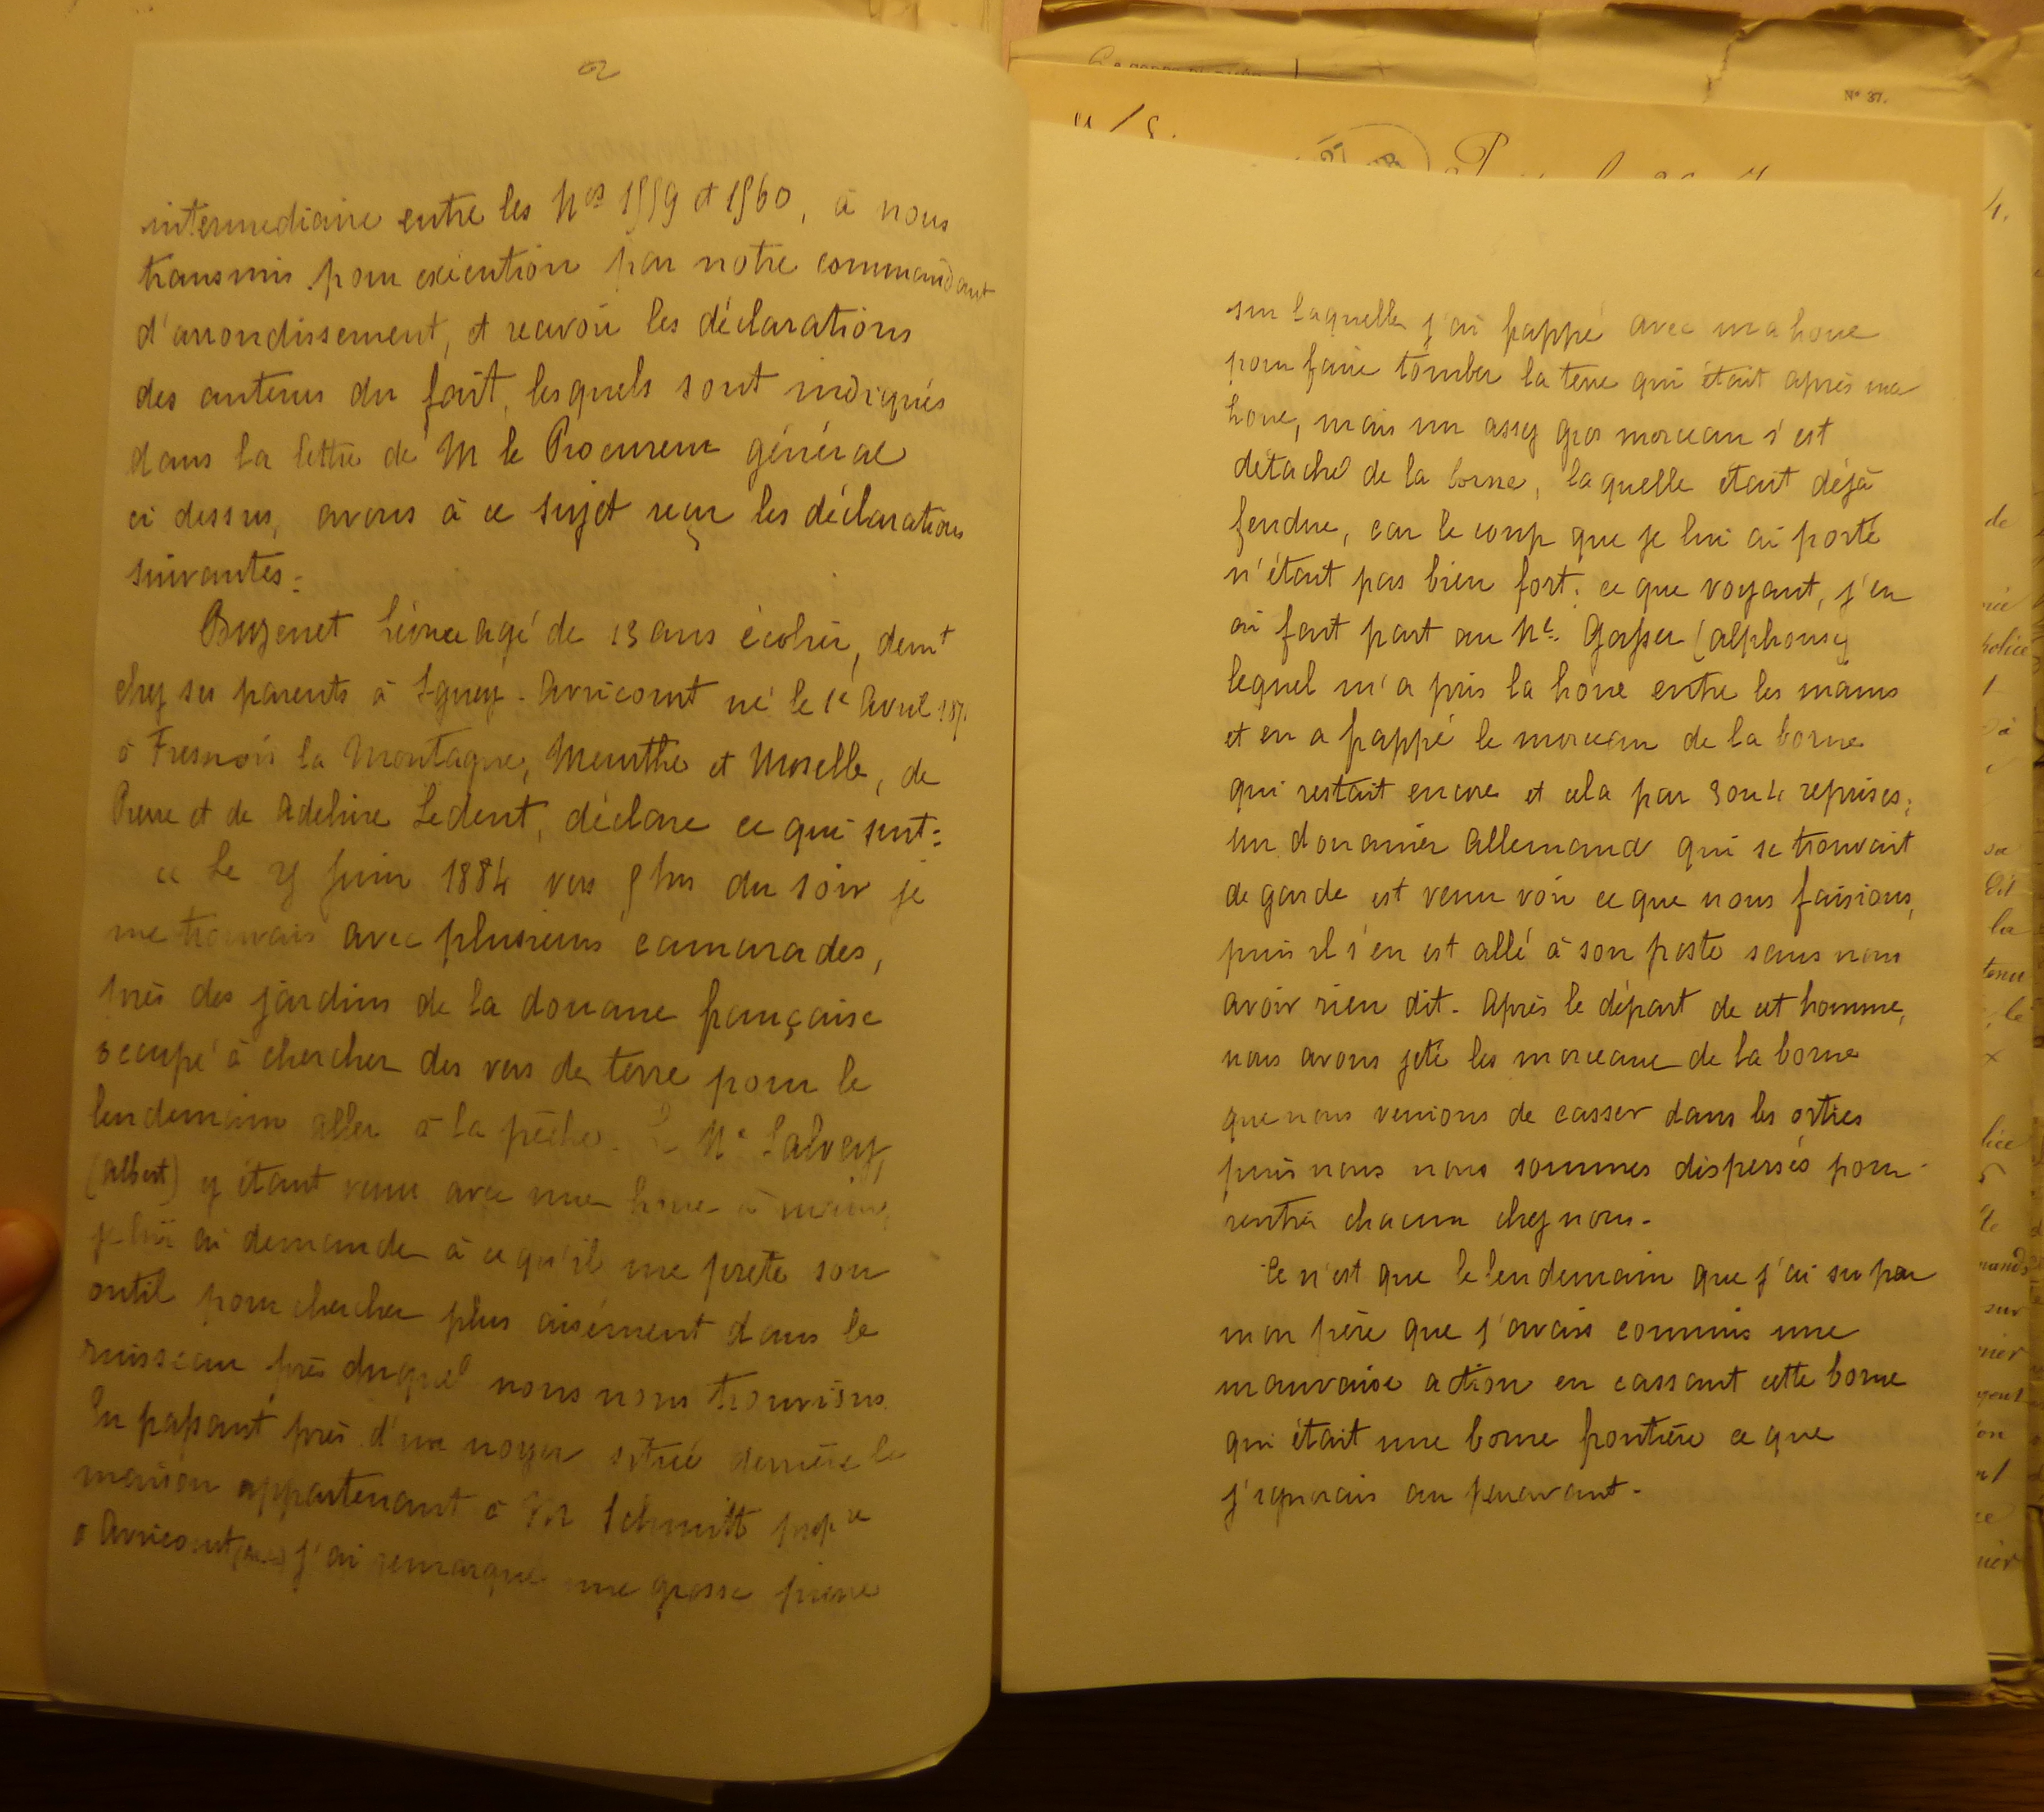 2
intermediaire entre les Nos 1559 et 1560, à nous
transmis pour exécution par notre commandant
d'arrondissement, et recevoir les déclarations
des auteurs du fait, lesquels sont indiqués
dans la lettre de M le Procureur général
ci dessus, avons à ce sujet reçu les déclarations
suivantes:
Buzenet Léonce agé de 13 ans écolier, demt
chez ses parents à Igney-Avricourt né le 1e Avril 187
à Fresnois la Montagne, Meurthe et Moselle, de
Pierre et de Adeline Ledent, déclare ce qui suit:
« Le Juin 1884 vers 5 hrs du soir je
me trouvais avec plusieurs camarades,
près des jardins de la douane française
occupé à chercher des vers de terre pour le
lendemain aller à la pêche. Le Né Lalvey,
(Albert) y étant venu avec une houe à main,
je lui ai demande à ce qu'il me prete son
outil pour chercher plus aisément dans le
ruisseau près duquel nous nous trouvions.
En passant près d'un noyer situé derrière la
maison appartenant à Mr Schmitt propre
à Avricourt j'ai remarque une grosse pierre
Nº 37.
sur laquelle j'ai frappé avec ma houe
pour faire tomber la terre qui était après ma
houe, mais un assez gros morceau s'est
détaché de la borne, laquelle était déjà
fendue, car le coup que je lui ai porté
n'étant pas bien fort; ce que voyant, j'en
ai fait part au Né. Gasser (Alphonse)
lequel m'a pris la houe entre les mains
et en a frappé le morceau de la borne
qui restait encore et cela par 3 ou 4 reprises;
un douanier Allemand qui se trouvait
de garde est venu voir ce que nous faisions,
puis il s'en est allé à son poste sans nous
avoir rien dit. Après le départ de cet homme,
nous avons jeté les morceaux de la borne
que nous venions de casser dans les orties
puis nous nous sommes dispersés pour
rentrer chacun chez nous.
Ce n'est que le lendemain que j'ai su par
mon père que j'avais commis une
mauvaise action en cassant cette borne
qui était une borne frontière ce que
j'ignorais au paravant.